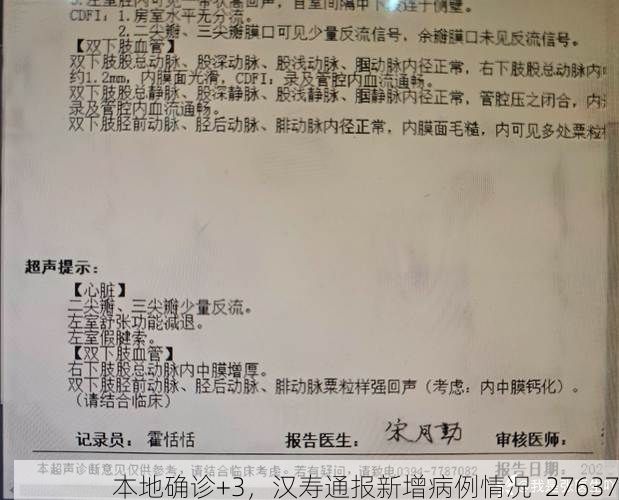 CDFI：1.房室水平无分流。
2.二尖瓣、三尖瓣膜口可见少量反流信号，余瓣膜口未见反流信号。
【双下肢血管】
双下肢股总动脉、股深动脉、股浅动脉、腘动脉内径正常，右下肢股总动脉内
约1.2mm，内膜面光滑，CDFI：录及管腔内血流通畅。
双下肢股总静脉、股深静脉、股浅静脉、腘静脉内径正常，管腔压之闭合，内
录及管腔内血流通畅。
双下肢胫前动脉、胫后动脉、腓动脉内径正常，内膜面毛糙，内可见多处粟粒
超声提示：
【心脏】
二尖瓣、三尖瓣少量反流。
左室舒张功能减退。
左室假腱索。
【双下肢血管】
右下肢股总动脉内中膜增厚。
双下肢胫前动脉、胫后动脉、腓动脉粟粒样强回声（考虑：内中膜钙化）。
（请结合临床）
记录员：霍恬恬 报告医生：宋月勤 审核医师：
本超声诊断意见仅供参考，请结合临床考虑。若有疑问，请致电0394-7787082 报告日期：202
本地确诊+3，汉寿通报新增病例情况-27637